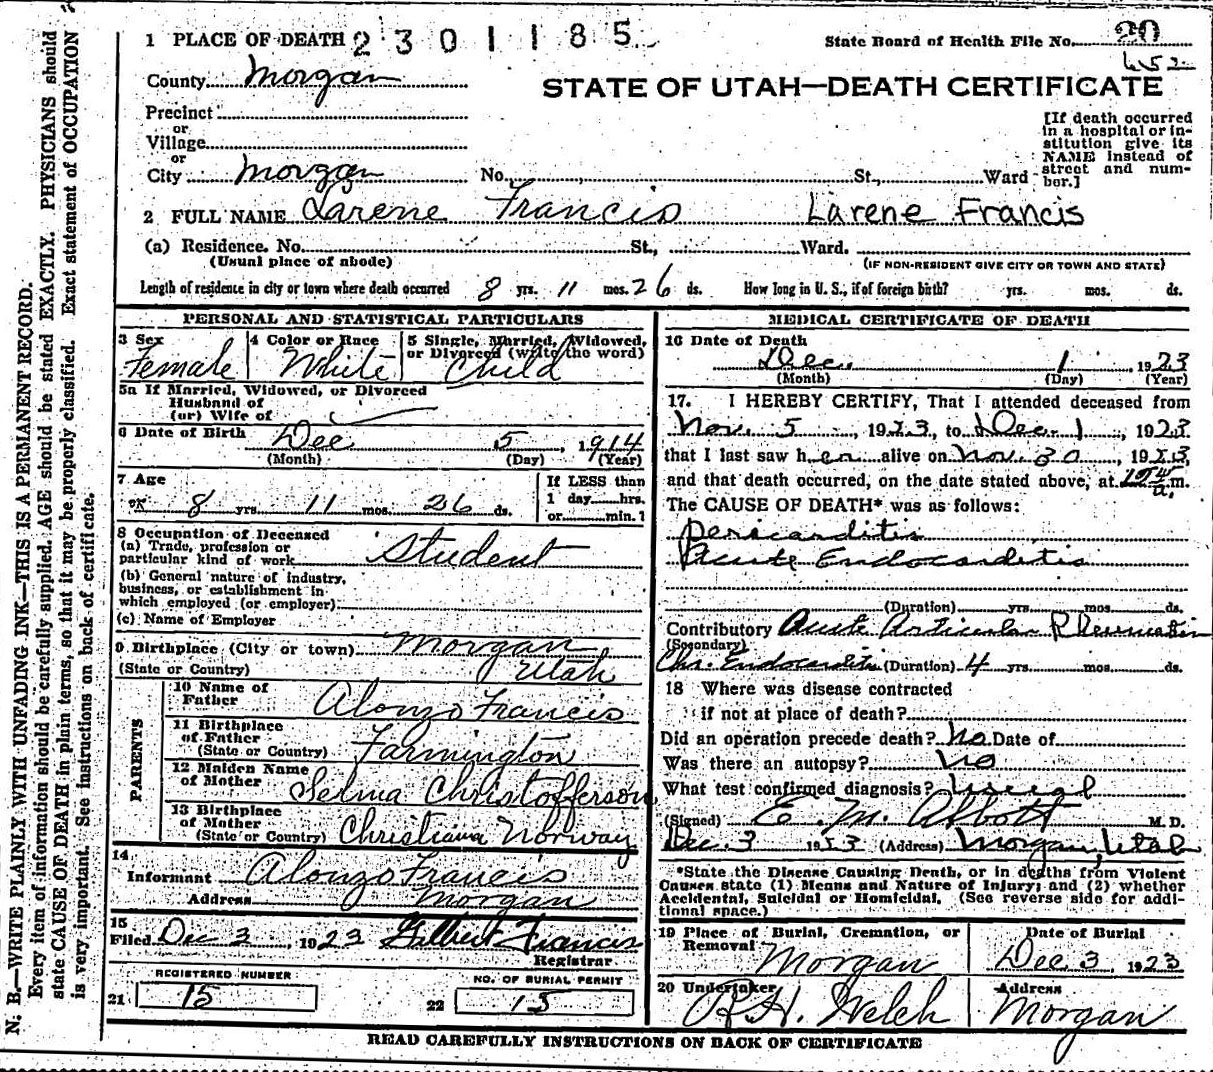 N. B.—WRITE PLAINLY WITH UNFADING INK—THIS IS A PERMANENT RECORD.
Every item of information should be carefully supplied. AGE should be stated EXACTLY. PHYSICIANS should
state CAUSE OF DEATH in plain terms, so that it may be properly classified. Exact statement of OCCUPATION
is very important. See instructions on back of certificate.
1 PLACE OF DEATH 2301185
State Board of Health File No. 20
652
County Morgan
STATE OF UTAH—DEATH CERTIFICATE
Precinct
or
Village
or
City Morgan No. St., Ward
[If death occurred
in a hospital or in-
stitution give its
NAME instead of
street and num-
ber.]
2 FULL NAME Larene Francis Larene Francis
(a) Residence. No. St., Ward.
(Usual place of abode) (IF NON-RESIDENT GIVE CITY OR TOWN AND STATE)
Length of residence in city or town where death occurred 8 yrs. 11 mos. 26 ds. How long in U. S., if of foreign birth? yrs. mos. ds.
PERSONAL AND STATISTICAL PARTICULARS
3 Sex 4 Color or Race 5 Single, Married, Widowed,
or Divorced (write the word)
Female White Child
5a If Married, Widowed, or Divorced
Husband of
(or) Wife of
6 Date of Birth Dec 5, 1914
(Month) (Day) (Year)
7 Age If LESS than
8 yrs. 11 mos. 26 ds. 1 day hrs.
or min.?
8 Occupation of Deceased
(a) Trade, profession or
particular kind of work Student
(b) General nature of industry,
business, or establishment in
which employed (or employer)
(c) Name of Employer
9 Birthplace (City or town) Morgan
(State or Country) Utah
PARENTS
10 Name of
Father Alonzo Francis
11 Birthplace
of Father
(State or Country) Farmington
12 Maiden Name
of Mother Selma Christofferson
13 Birthplace
of Mother
(State or Country) Christiana Norway
14
Informant Alonzo Francis
Address Morgan
15
Filed Dec 3, 1923 Gilbert Francis
Registrar
REGISTERED NUMBER NO. OF BURIAL PERMIT
21 15 22 15
MEDICAL CERTIFICATE OF DEATH
16 Date of Death
Dec. 1, 1923
(Month) (Day) (Year)
17. I HEREBY CERTIFY, That I attended deceased from
Nov. 5, 1923, to Dec. 1, 1923
that I last saw her alive on Nov. 30, 1923,
and that death occurred, on the date stated above, at a.m.
The CAUSE OF DEATH* was as follows:
Pericarditis
Acute Endocarditis
(Duration) yrs. mos. ds.
Contributory Acute Articular Rheumatism
(Secondary)
Chr. Endocarditis (Duration) 4 yrs. mos. ds.
18 Where was disease contracted
if not at place of death?
Did an operation precede death? No Date of
Was there an autopsy? No
What test confirmed diagnosis?
(Signed) E. M. Abbott M. D.
Dec. 3 1923 (Address) Morgan, Utah
*State the Disease Causing Death, or in deaths from Violent
Causes state (1) Means and Nature of Injury; and (2) whether
Accidental, Suicidal or Homicidal. (See reverse side for addi-
tional space.)
19 Place of Burial, Cremation, or Date of Burial
Removal Morgan Dec. 3, 1923
20 Undertaker Address
R. H. Welch Morgan
READ CAREFULLY INSTRUCTIONS ON BACK OF CERTIFICATE